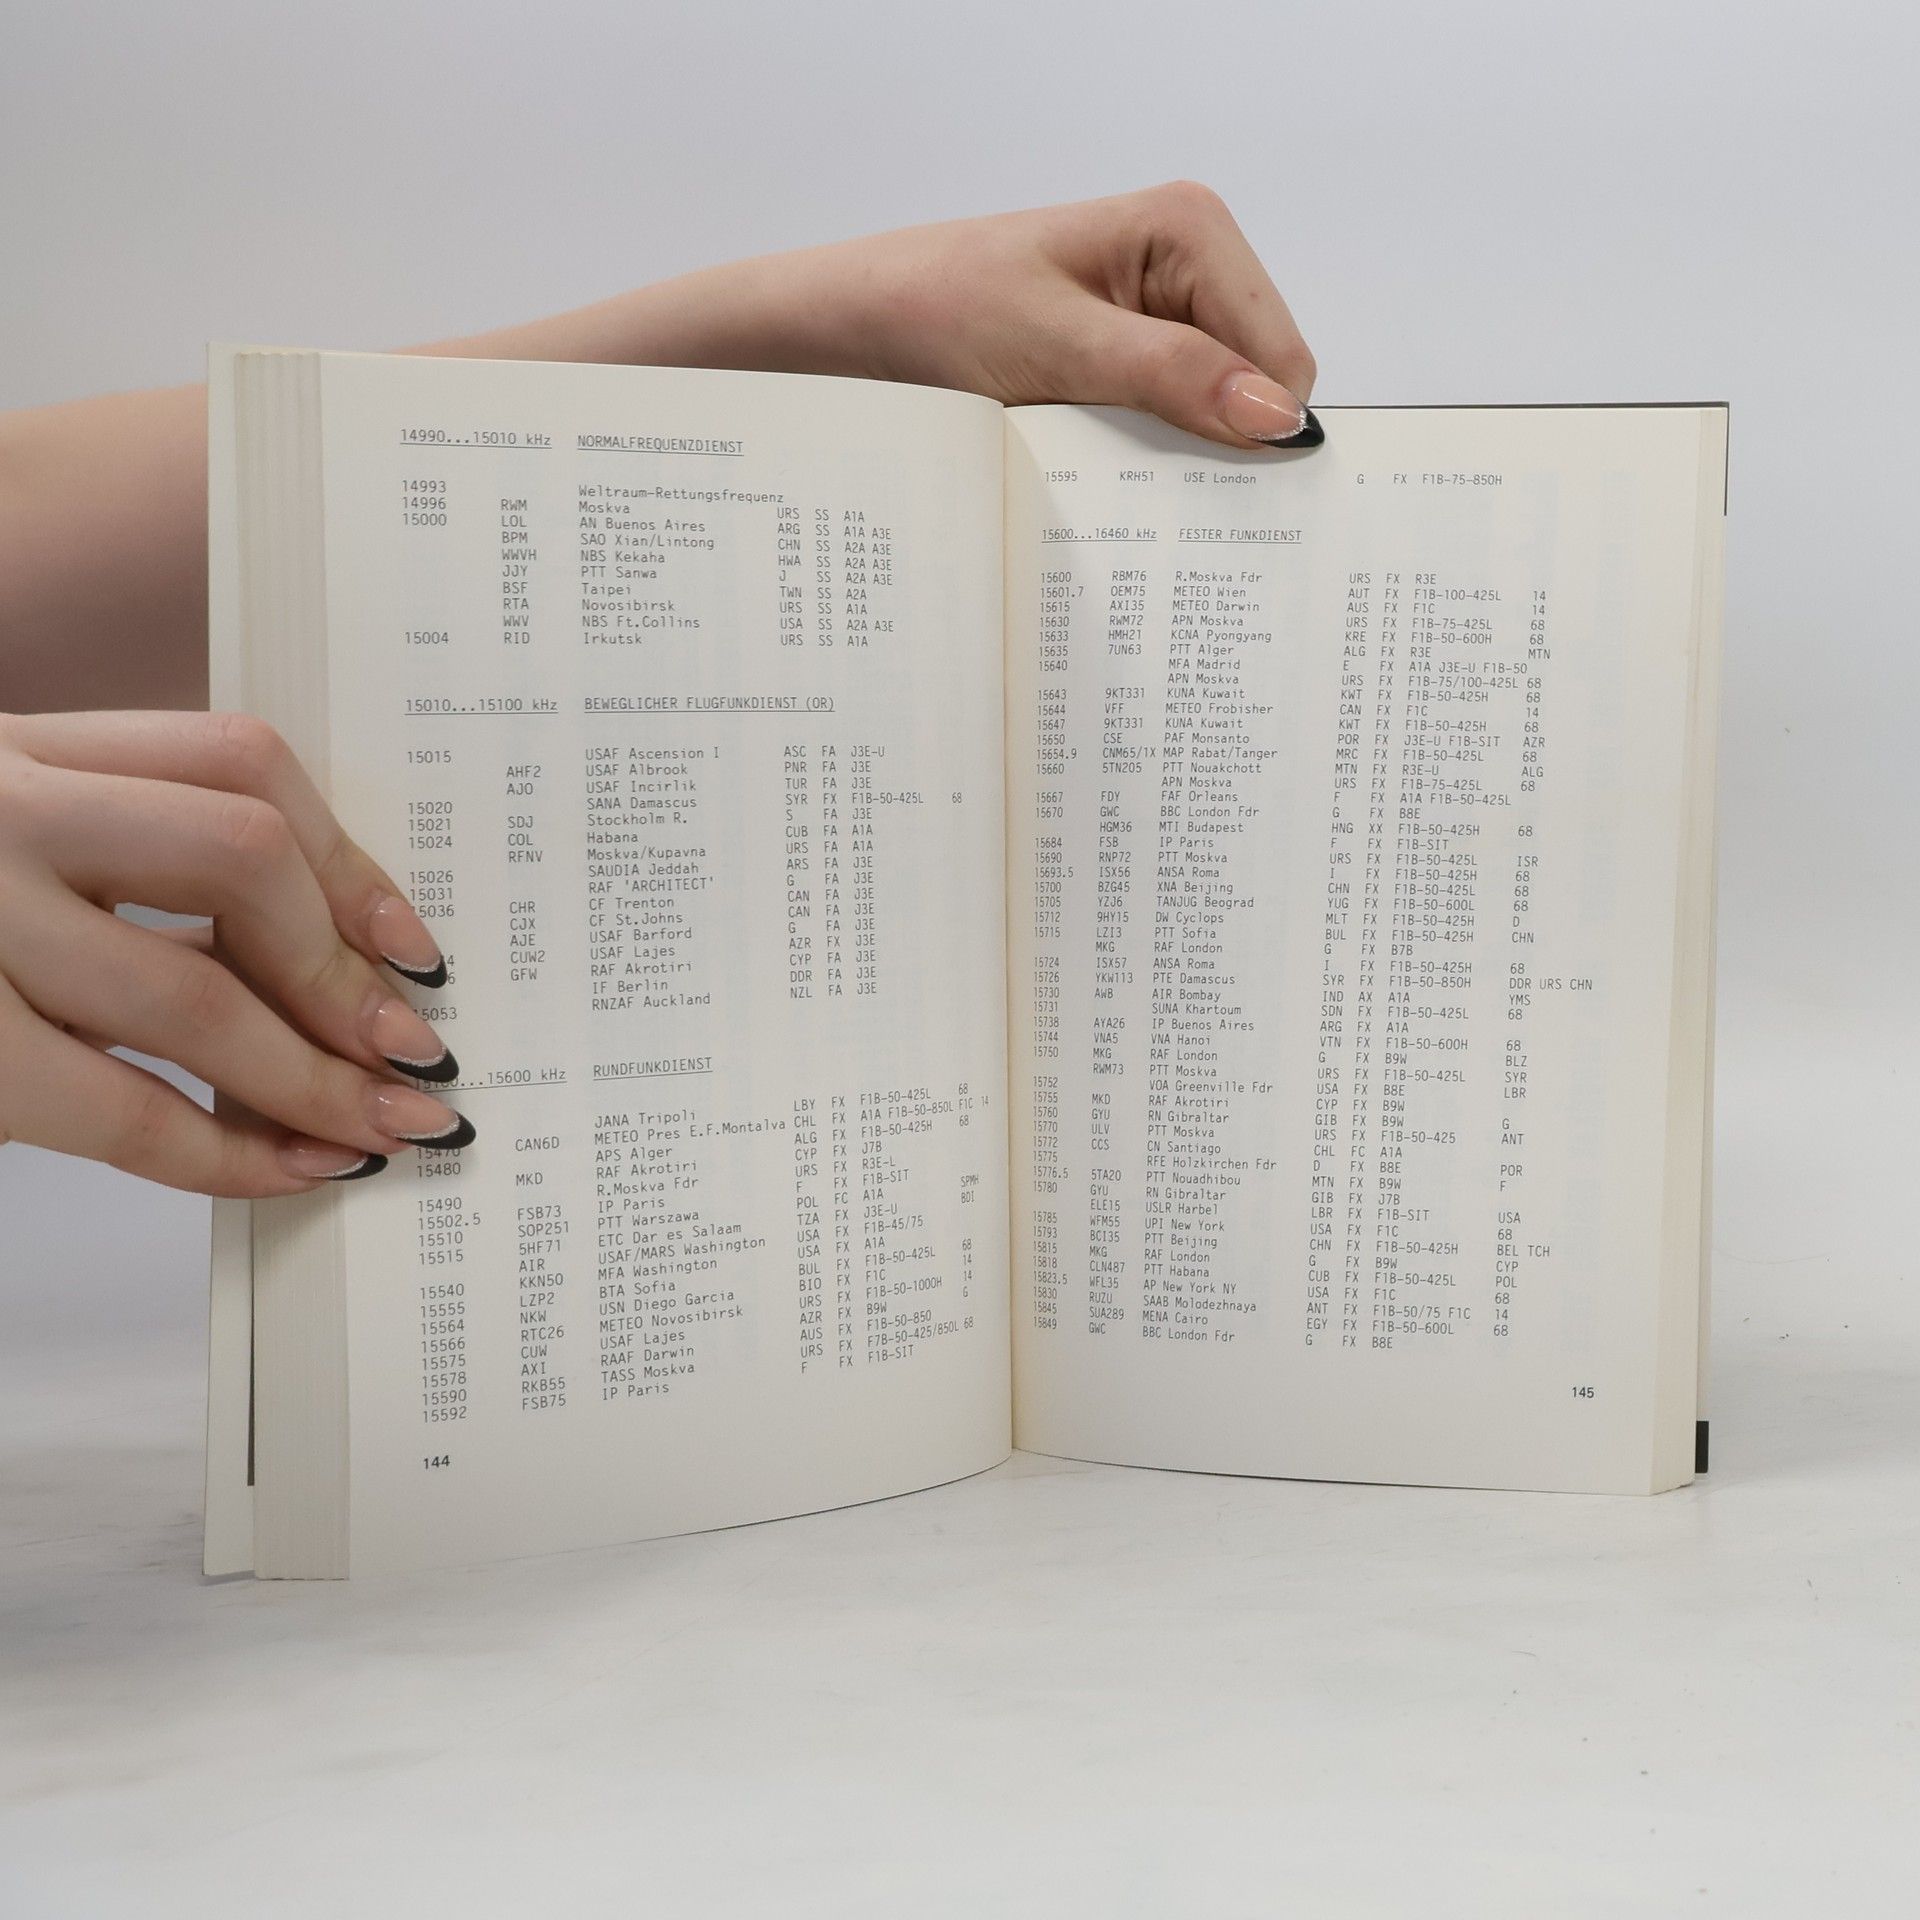 14990...15010 kHz NORMALFREQUENZDIENST
14993 Weltraum-Rettungsfrequenz
14996 RWM Moskva URS SS A1A
15000 LOL AN Buenos Aires ARG SS A1A A3E
BPM SAO Xian/Lintong CHN SS A2A A3E
WWVH NBS Kekaha HWA SS A2A A3E
JJY PTT Sanwa J SS A2A A3E
BSF Taipei TWN SS A2A
RTA Novosibirsk URS SS A1A
WWV NBS Ft.Collins USA SS A2A A3E
15004 RID Irkutsk URS SS A1A
15010...15100 kHz BEWEGLICHER FLUGFUNKDIENST (OR)
15015 USAF Ascension I ASC FA J3E-U
AHF2 USAF Albrook PNR FA J3E
AJO USAF Incirlik TUR FA J3E
15020 SANA Damascus SYR FX F1B-50-425L 68
15021 SDJ Stockholm R. S FA J3E
15024 COL Habana CUB FA A1A
RFNV Moskva/Kupavna URS FA A1A
15026 SAUDIA Jeddah ARS FA J3E
15031 RAF 'ARCHITECT' G FA J3E
15036 CHR CF Trenton CAN FA J3E
CJX CF St.Johns CAN FA J3E
AJE USAF Barford G FA J3E
CUW2 USAF Lajes AZR FX J3E
GFW RAF Akrotiri CYP FA J3E
IF Berlin DDR FA J3E
15053 RNZAF Auckland NZL FA J3E
...15600 kHz RUNDFUNKDIENST
JANA Tripoli LBY FX F1B-50-425L 68
15470 CAN6D METEO Pres E.F.Montalva CHL FX A1A F1B-50-850L F1C 14
15480 APS Alger ALG FX F1B-50-425H 68
MKD RAF Akrotiri CYP FX J7B
15490 R.Moskva Fdr URS FX R3E-L
15502.5 FSB73 IP Paris F FX F1B-SIT
15510 SOP251 PTT Warszawa POL FC A1A SPMH
15515 5HF71 ETC Dar es Salaam TZA FX J3E-U BDI
AIR USAF/MARS Washington USA FX F1B-45/75
15540 KKN50 MFA Washington USA FX A1A
15555 LZP2 BTA Sofia BUL FX F1B-50-425L 68
15564 NKW USN Diego Garcia BIO FX F1C 14
15566 RTC26 METEO Novosibirsk URS FX F1B-50-1000H 14
15575 CUW USAF Lajes AZR FX B9W G
15578 AXI RAAF Darwin AUS FX F1B-50-850
15590 RKB55 TASS Moskva URS FX F7B-50-425/850L 68
15592 FSB75 IP Paris F FX F1B-SIT
144
15595 KRH51 USE London G FX F1B-75-850H
15600...16460 kHz FESTER FUNKDIENST
15600 RBM76 R.Moskva Fdr URS FX R3E
15601.7 OEM75 METEO Wien AUT FX F1B-100-425L 14
15615 AXI35 METEO Darwin AUS FX F1C 14
15630 RWM72 APN Moskva URS FX F1B-75-425L 68
15633 HMH21 KCNA Pyongyang KRE FX F1B-50-600H 68
15635 7UN63 PTT Alger ALG FX R3E MTN
15640 MFA Madrid E FX A1A J3E-U F1B-50
APN Moskva URS FX F1B-75/100-425L 68
15643 9KT331 KUNA Kuwait KWT FX F1B-50-425H 68
15644 VFF METEO Frobisher CAN FX F1C 14
15647 9KT331 KUNA Kuwait KWT FX F1B-50-425H 68
15650 CSE PAF Monsanto POR FX J3E-U F1B-SIT AZR
15654.9 CNM65/1X MAP Rabat/Tanger MRC FX F1B-50-425L 68
15660 5TN205 PTT Nouakchott MTN FX R3E-U ALG
APN Moskva URS FX F1B-75-425L 68
15667 FDY FAF Orleans F FX A1A F1B-50-425L
15670 GWC BBC London Fdr G FX B8E
HGM36 MTI Budapest HNG XX F1B-50-425H 68
15684 FSB IP Paris F FX F1B-SIT
15690 RNP72 PTT Moskva URS FX F1B-50-425L ISR
15693.5 ISX56 ANSA Roma I FX F1B-50-425H 68
15700 BZG45 XNA Beijing CHN FX F1B-50-425L 68
15705 YZJ6 TANJUG Beograd YUG FX F1B-50-600L 68
15712 9HY15 DW Cyclops MLT FX F1B-50-425H D
15715 LZI3 PTT Sofia BUL FX F1B-50-425H CHN
MKG RAF London G FX B7B
15724 ISX57 ANSA Roma I FX F1B-50-425H 68
15726 YKW113 PTE Damascus SYR FX F1B-50-850H DDR URS CHN
15730 AWB AIR Bombay IND AX A1A YMS
15731 SUNA Khartoum SDN FX F1B-50-425L 68
15738 AYA26 IP Buenos Aires ARG FX A1A
15744 VNA5 VNA Hanoi VTN FX F1B-50-600H 68
15750 MKG RAF London G FX B9W BLZ
RWM73 PTT Moskva URS FX F1B-50-425L SYR
15752 VOA Greenville Fdr USA FX B8E LBR
15755 MKD RAF Akrotiri CYP FX B9W
15760 GYU RN Gibraltar GIB FX B9W G
15770 ULV PTT Moskva URS FX F1B-50-425 ANT
15772 CCS CN Santiago CHL FC A1A
15775 RFE Holzkirchen Fdr D FX B8E POR
15776.5 5TA20 PTT Nouadhibou MTN FX B9W F
15780 GYU RN Gibraltar GIB FX J7B
ELE15 USLR Harbel LBR FX F1B-SIT USA
15785 WFM55 UPI New York USA FX F1C 68
15793 BCI35 PTT Beijing CHN FX F1B-50-425H BEL TCH
15815 MKG RAF London G FX B9W CYP
15818 CLN487 PTT Habana CUB FX F1B-50-425L POL
15823.5 WFL35 AP New York NY USA FX F1C 68
15830 RUZU SAAB Molodezhnaya ANT FX F1B-50/75 F1C 14
15845 SUA289 MENA Cairo EGY FX F1B-50-600L 68
15849 GWC BBC London Fdr G FX B8E
145